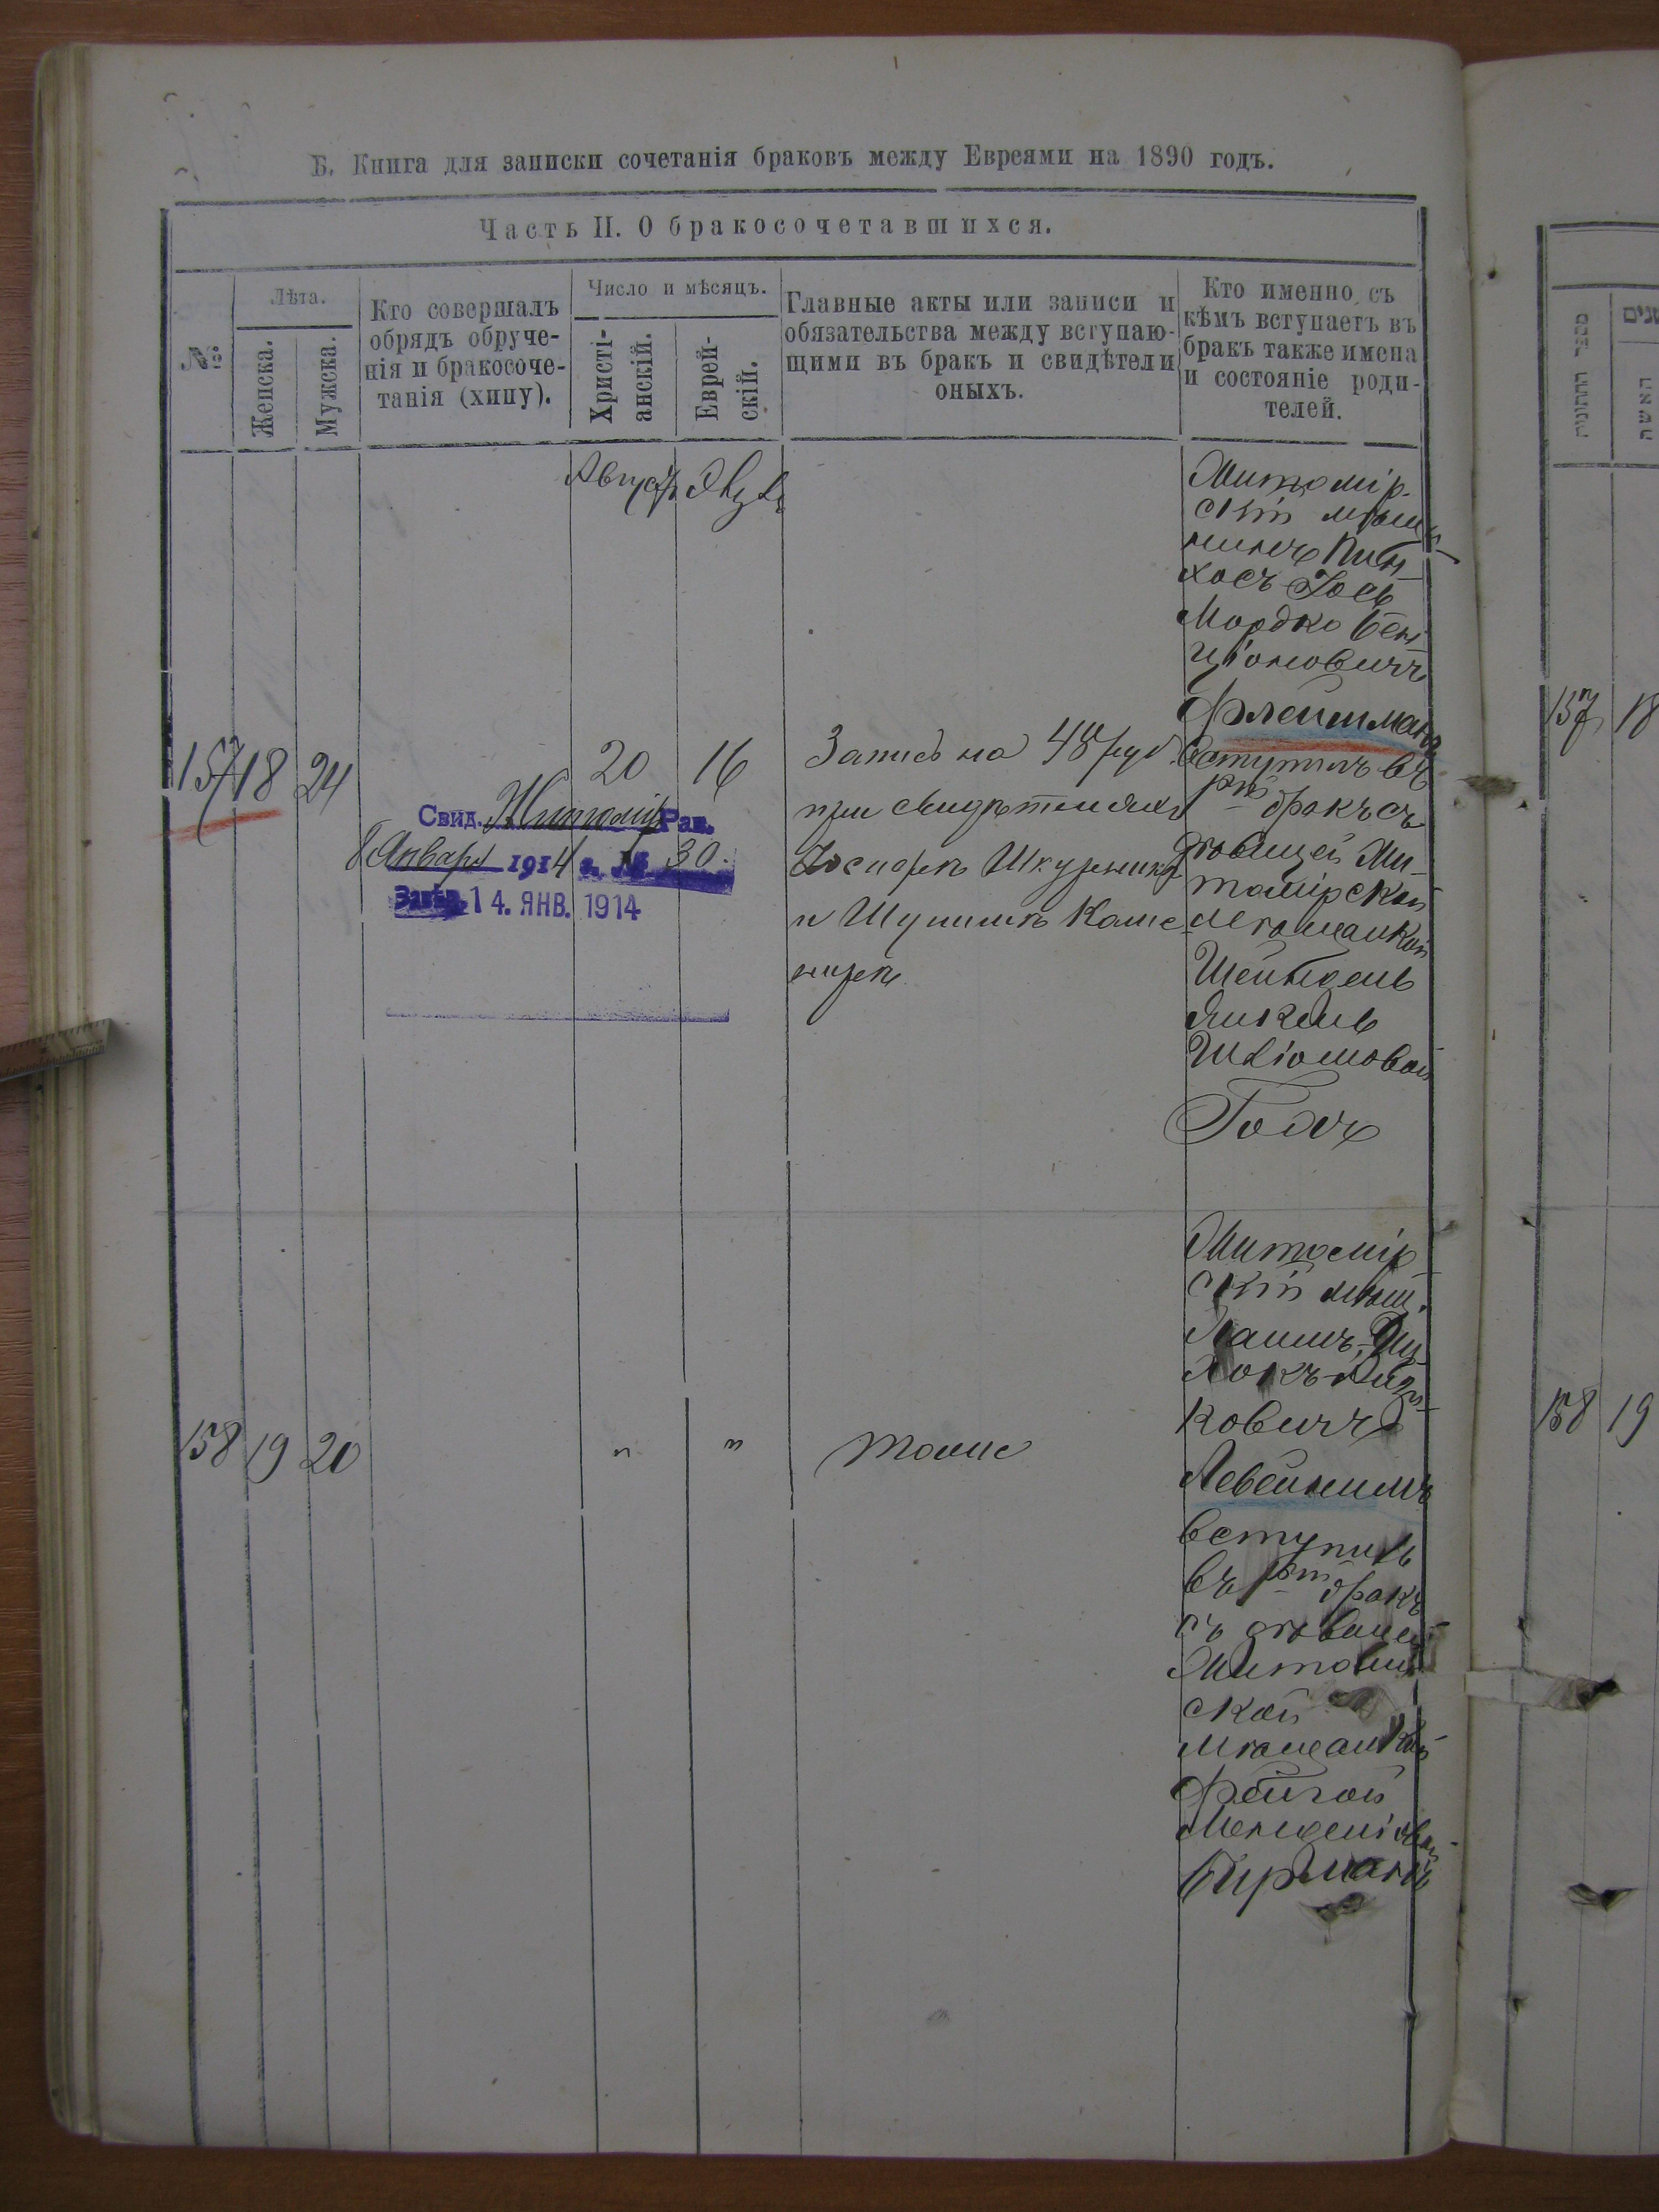 Б. Книга для записки сочетанія браковъ между Евреями на 1890 годъ.
Часть II. О бракосочетавшихся.
№.
Лѣта.
Женска.
Мужска.
Кто совершалъ
обрядъ обруче-
нія и бракосоче-
танія (хипу).
Число и мѣсяцъ.
Христі-
анскій.
Еврей-
скій.
Главные акты или записи и
обязательства между вступаю-
щими въ бракъ и свидѣтели
оныхъ.
Кто именно съ
кѣмъ вступаетъ въ
бракъ также имена
и состояніе роди-
телей.
Августъ
157 18 24
20 16
Свид. Житомір Рав.
8 Января 1914 г. № 30.
Завѣр. 14. ЯНВ. 1914
Запись на 48 руб.
при свидѣтеляхъ
Іоспоръ Шкурникъ
и Шулимъ Каме
ниръ
Житомір-
скій мѣща
нинъ Пин
хосъ Іось
Мордко Бен
ціоновичъ
Флейшманъ
вступилъ въ
1й бракъ съ
дѣвицей Жи-
томірской
мѣщанкой
Шейндель
Янкель
Шліомовой
Голъ
158 19 20
" "
тоже
Житомір
скій мѣщ.
Хаимъ-Иц
хокъ
ковичъ
Левейнимъ
вступилъ
въ 1й бракъ
съ дѣвицей
Житомір
ской
мѣщанкой
Фейгой
Менделіовой
Бирманъ
מספר החתונות
שנים
האשה
157 18
158 19